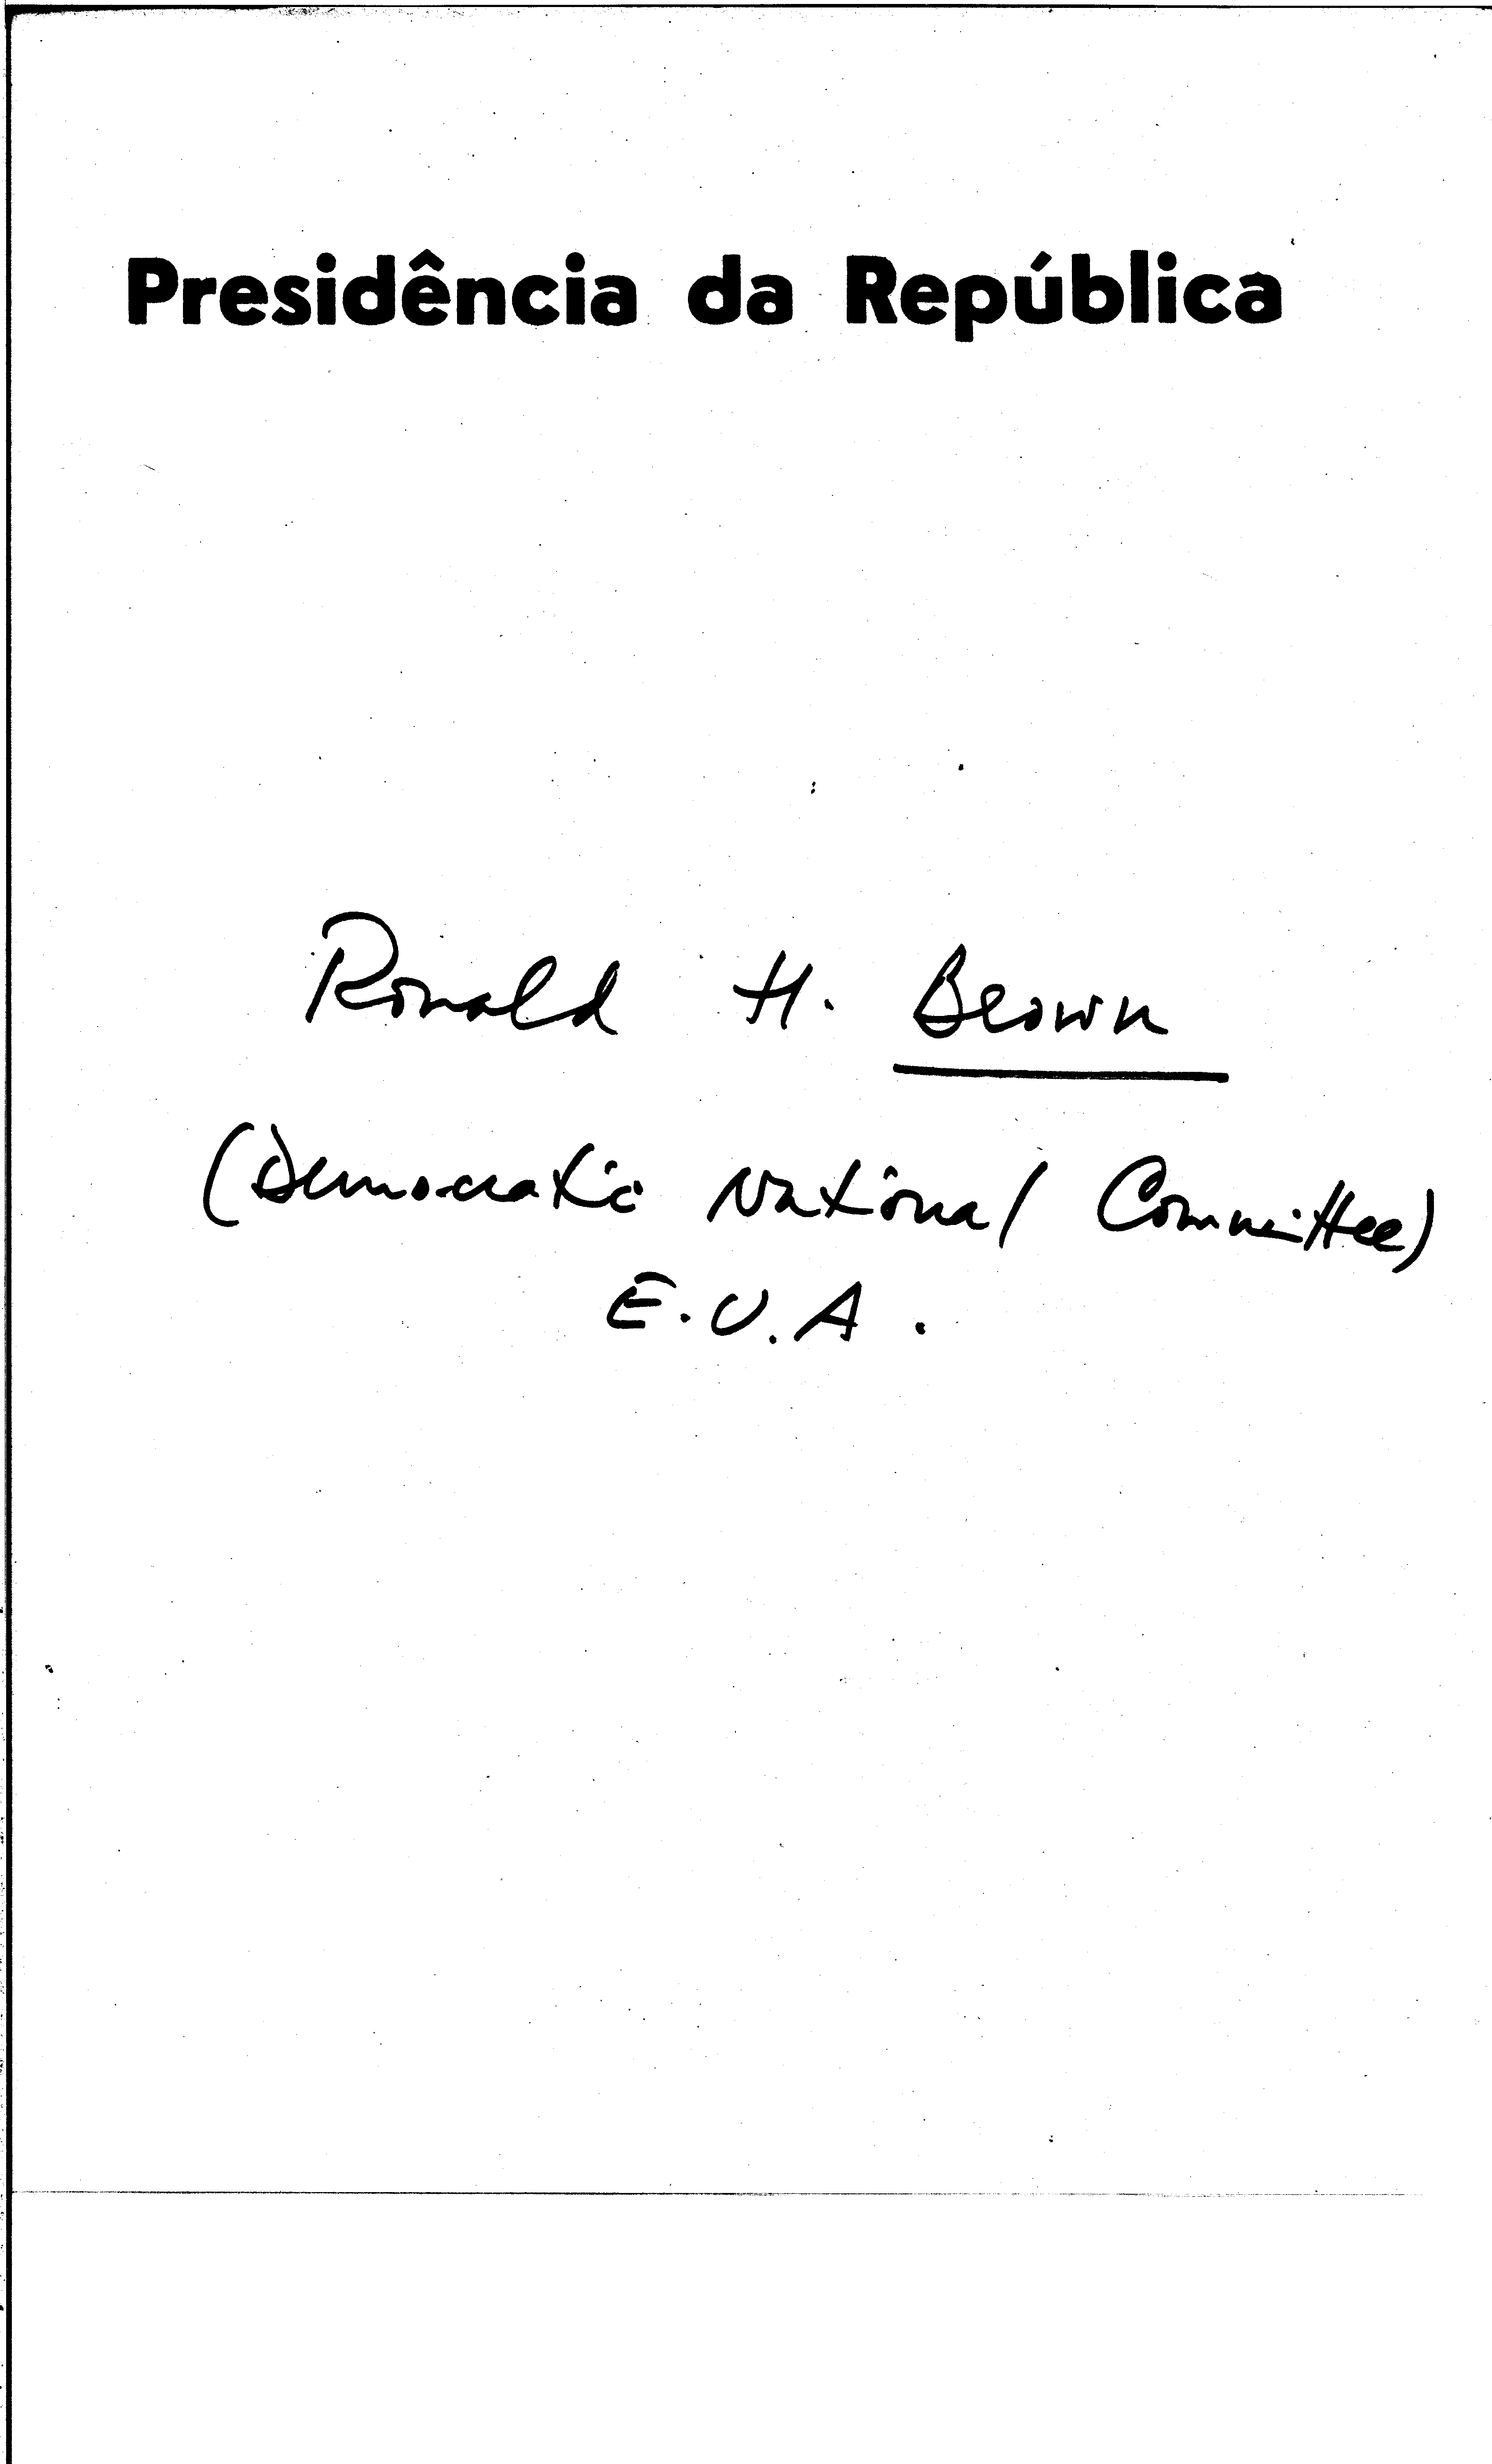 Presidência da República
Ronald H. Brown
(Democratic National Committee)
E.U.A.